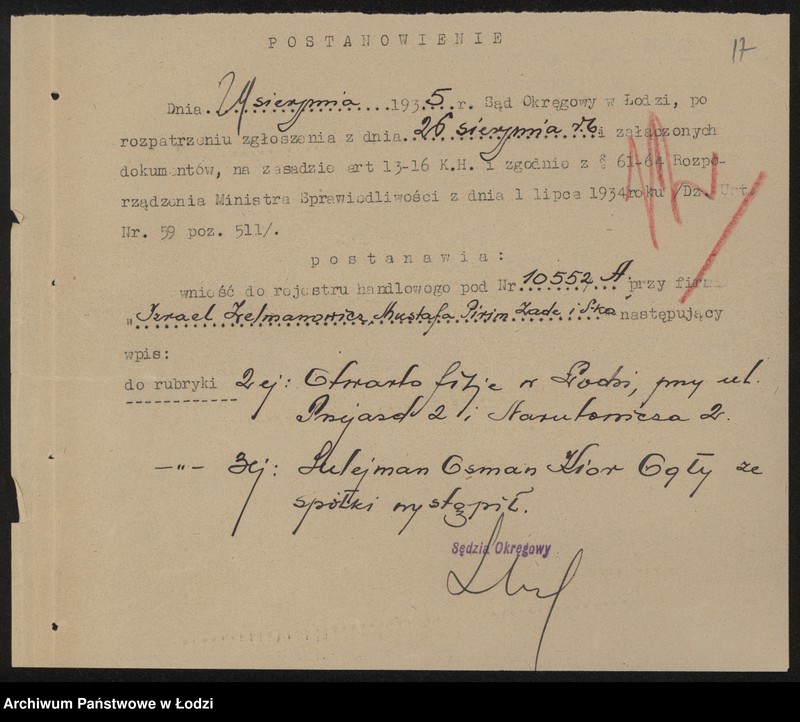 17
POSTANOWIENIE
Dnia sierpnia 1935 r. Sąd Okręgowy w Łodzi, po
rozpatrzeniu zgłoszenia z dnia 26 sierpnia rb. i załączonych
dokumentów, na zasadzie art 13-16 K.H. i zgodnie z § 61-64 Rozpo-
rządzenia Ministra Sprawiedliwości z dnia 1 lipca 1934 roku /Dz. Ust.
Nr. 59 poz. 511/.
postanawia:
wnieść do rejestru handlowego pod Nr 10552 A przy firmie
"Izrael Zelmanowicz, Mustafa Pirim Zade i S-ka" następujący
wpis:
do rubryki 2ej: Otwarto filje w Łodzi, przy ul.
Przejazd 2 i Narutowicza 2.
-"- 3ej: Sulejman Osman Kior Ogły ze
spółki wystąpił.
Sędzia Okręgowy
Archiwum Państwowe w Łodzi